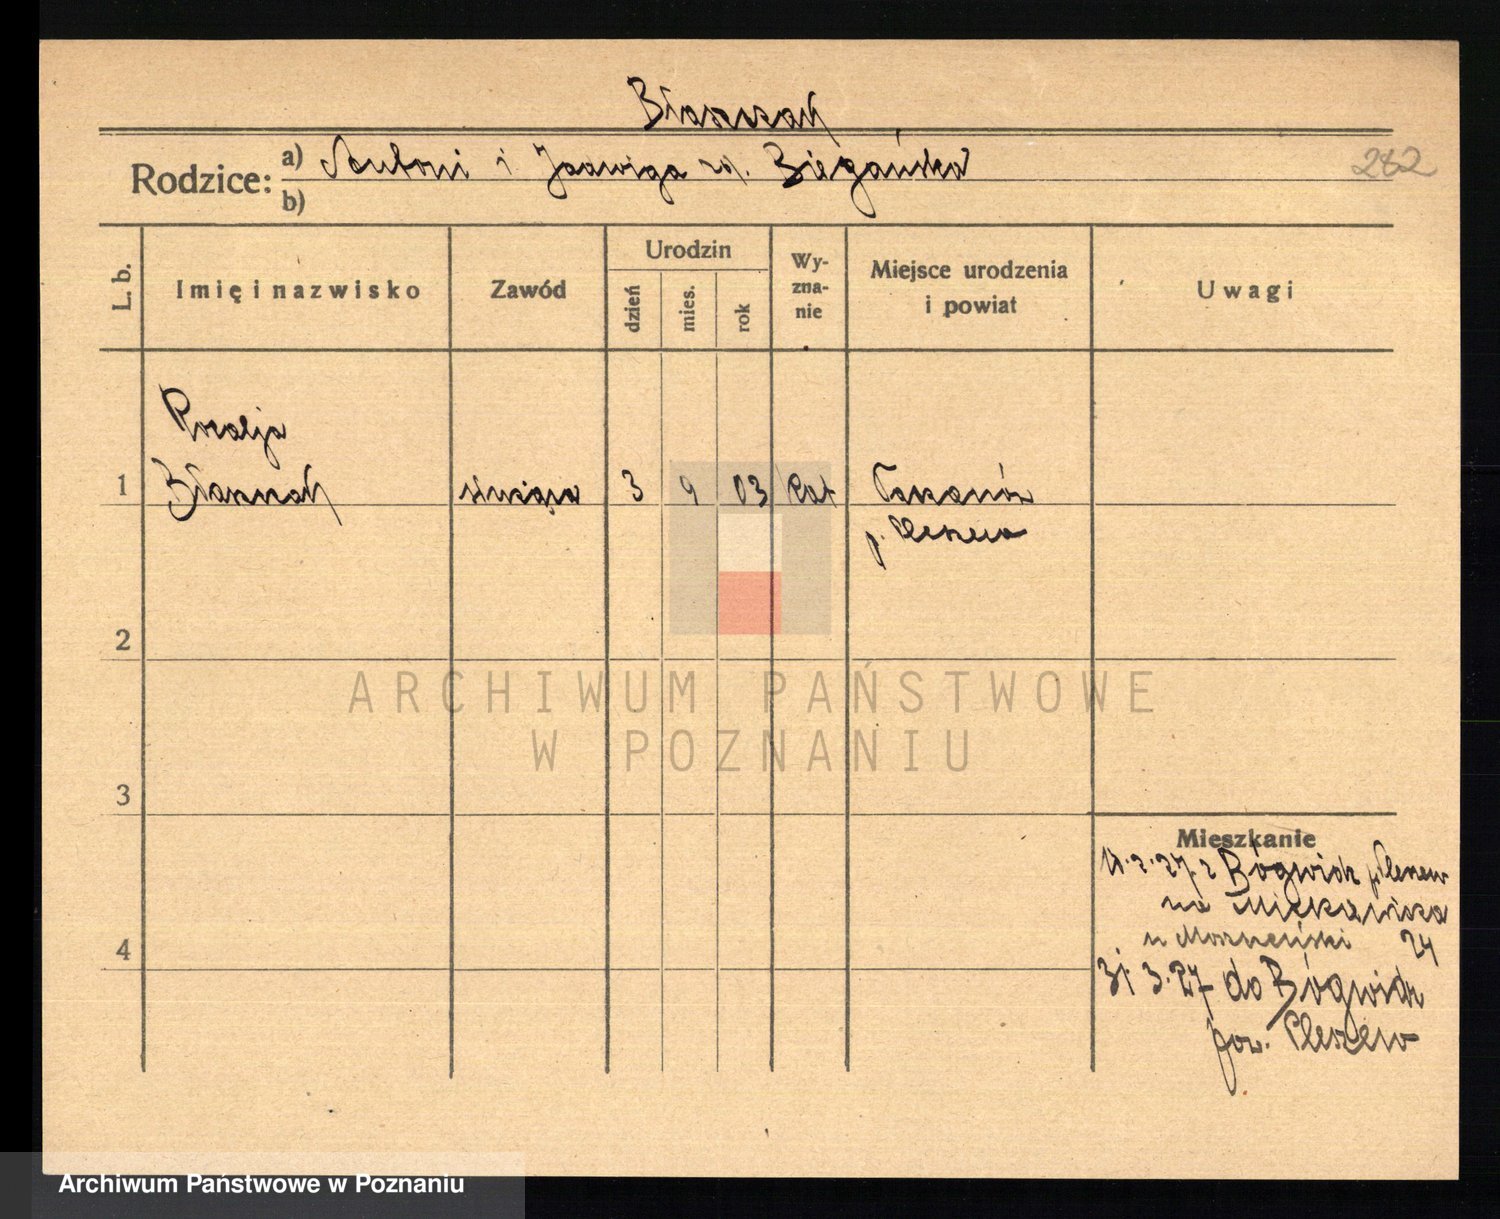 Błaszczak
Rodzice: a) Antoni i Jadwiga zd. Biegańska
b)
282
L. b.
Imię i nazwisko
Zawód
Urodzin
dzień
mies.
rok
Wy-
zna-
nie
Miejsce urodzenia
i powiat
Uwagi
Rozalja
1 Błaszczak służąca 3 9 03 kat Taczanów
p. Pleszew
2
3
4
Mieszkanie
27 z Bógwidz p. Pleszew
na Mickiewicza
u 24
31. 3. 27 do Bógwidz
pow. Pleszew
ARCHIWUM PAŃSTWOWE
W POZNANIU
Archiwum Państwowe w Poznaniu